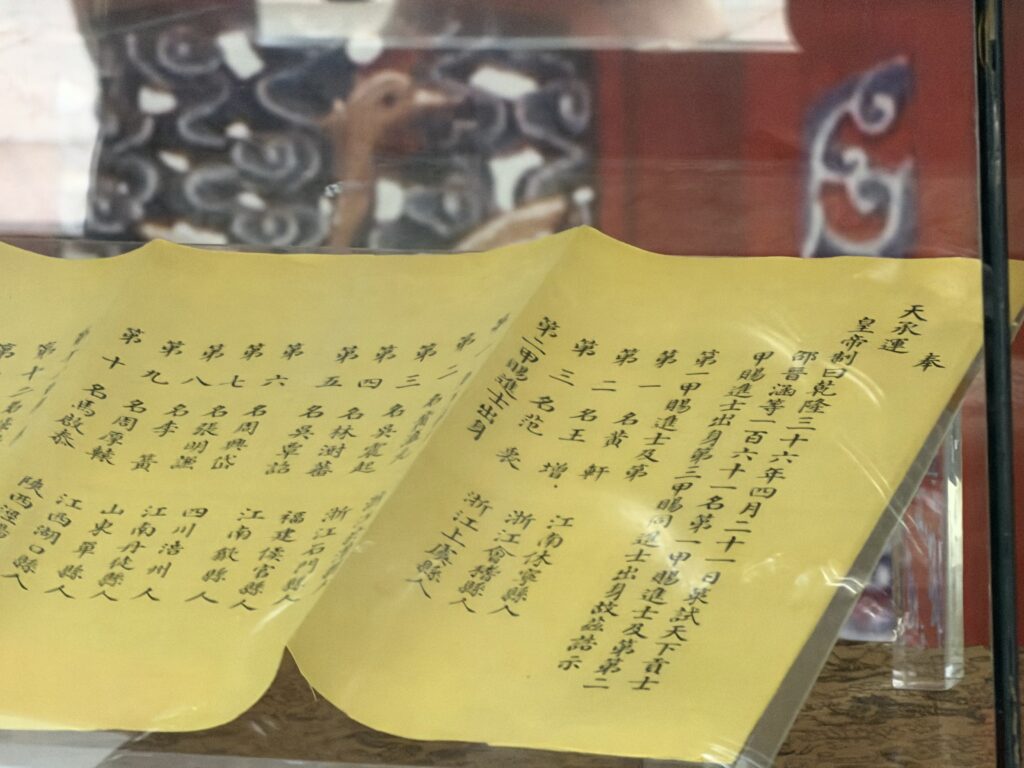 奉
天承運
皇帝制曰乾隆三十六年四月二十一日策試天下貢士
邵晉涵等一百六十一名第一甲賜進士及第第二
甲賜進士出身第三甲賜同進士出身故茲誥示
第一甲賜進士及第
第一名黃軒 江南休寧縣人
第二名王增 浙江會稽縣人
第三名范衷 浙江上虞縣人
第二甲賜進士出身
第二
第三名吳震起 浙江石門縣人
第四名林澍蕃 福建侯官縣人
第五名吳覃詔 江南歙縣人
第六名周興岱 四川涪州人
第七名張明謙 江南丹徒縣人
第八名李黃 山東單縣人
第九名周厚轅 江西湖口縣人
第十名馬啟泰 陝西涇縣人
第十